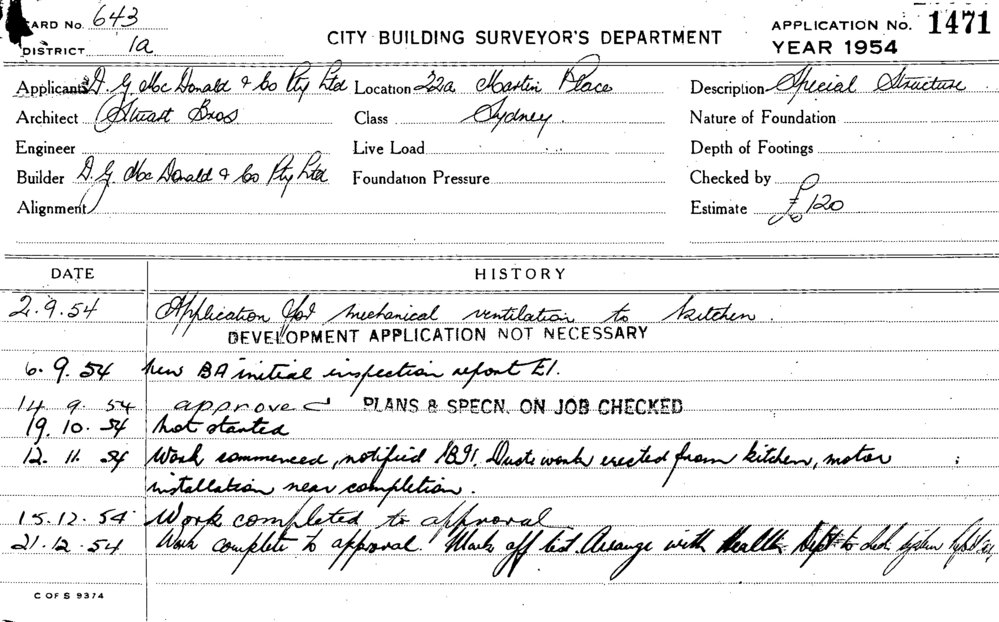 CARD No. 643
DISTRICT 1a
CITY BUILDING SURVEYOR'S DEPARTMENT
APPLICATION No. 1471
YEAR 1954
Applicants D. G. Mc Donald & Co Pty Ltd Location 22a Martin Place Description Special Structure
Architect Stuart Bros Class Sydney. Nature of Foundation
Engineer Live Load Depth of Footings
Builder D. G. Mc Donald & Co Pty Ltd Foundation Pressure Checked by
Alignment Estimate £120
DATE HISTORY
2.9.54 Application for mechanical ventilation to kitchen.
DEVELOPMENT APPLICATION NOT NECESSARY
6.9.54 new BA initial inspection report E1.
14.9.54 approved PLANS & SPECN. ON JOB CHECKED
19.10.54 Not started
12.11.54 Work commenced, notified Duct work erected from kitchen, motor
installation near completion.
15.12.54 Work completed to approval
21.12.54 Work complete to approval. Mark off list. Arrange with Health Dept to check system
C OF S 9374